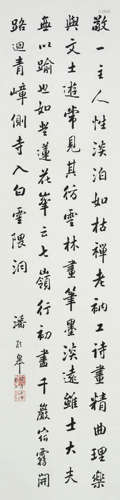 敬一主人性淡泊如枯禪老衲工詩畫精曲理樂
與文士遊常見其仿雲林畫筆墨淡遠雖士大夫
無以踰也如登蓮花峯云七嶺行初盡千巖宿霧開
路迴青嶂側寺入白雲隈洞
潘齡皋